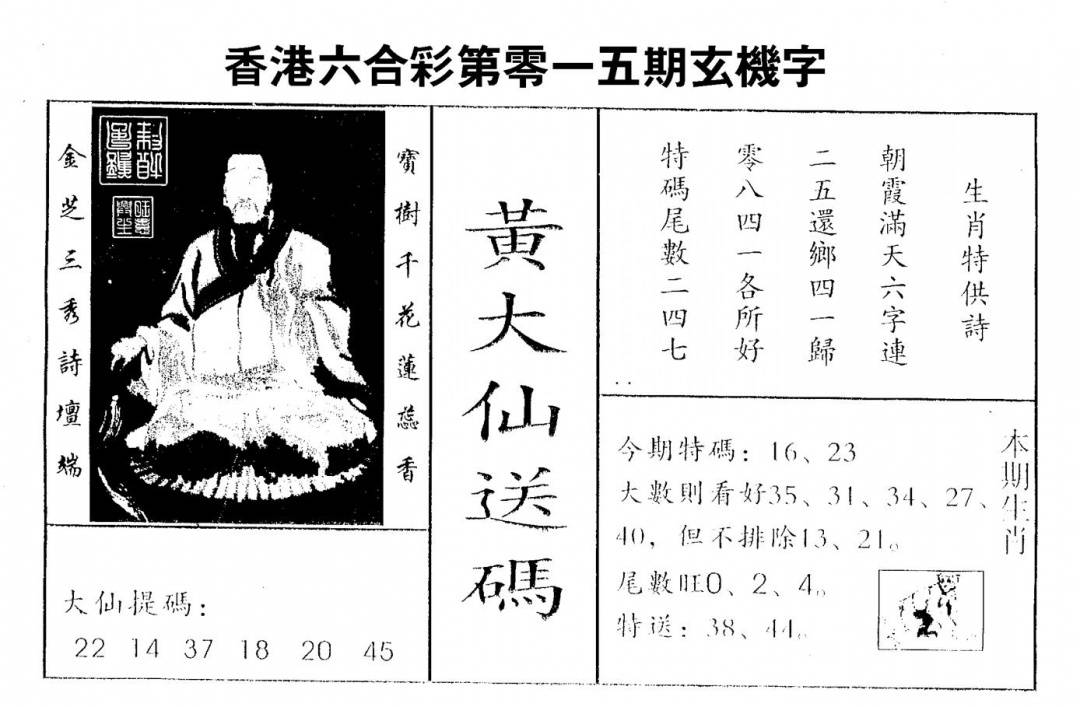 香港六合彩第零一五期玄機字
寶樹千花蓮蕊香
金芝三秀詩壇端
大仙提碼：
22 14 37 18 20 45
黃大仙送碼
生肖特供詩
朝霞滿天六字連
二五還鄉四一歸
零八四一各所好
特碼尾數二四七
本期生肖
今期特碼：16、23
大數則看好35、31、34、27、
40，但不排除13、21。
尾數旺0、2、4。
特送：38、44。